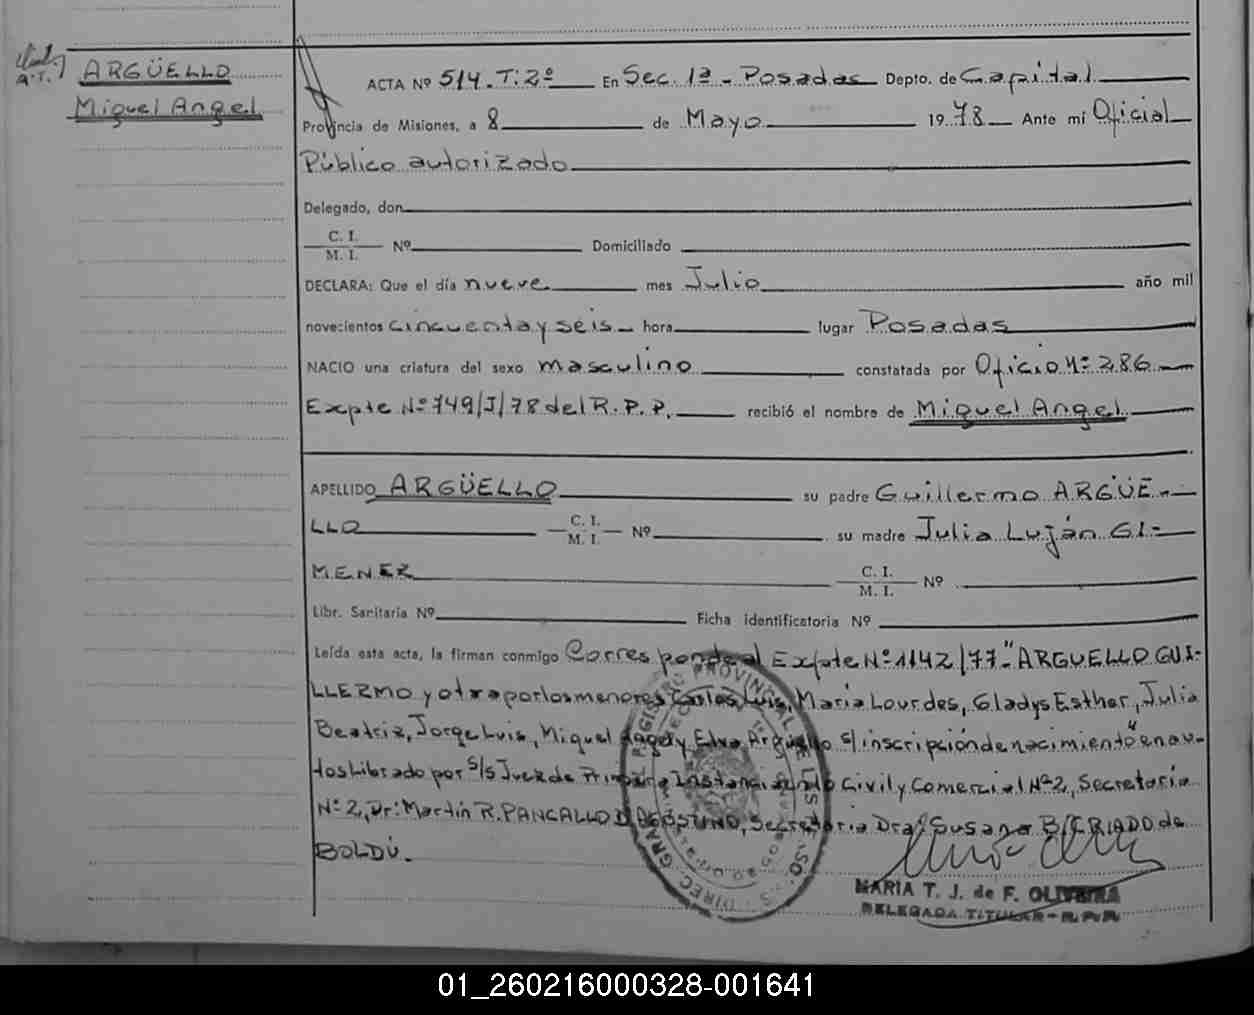 ARGÜELLO
Miguel Angel
A.T.
ACTA Nº 514. T: 2º En Sec. 1ª - Posadas Depto. de Capital
Provincia de Misiones, a 8 de Mayo 1978 Ante mí Oficial
Público autorizado
Delegado, don
C. I.
M. I. Nº Domiciliado
DECLARA: Que el día nueve mes Julio año mil
novecientos cincuenta y seis hora lugar Posadas
NACIO una criatura del sexo masculino constatada por Oficio Nº 286
Expte Nº 749/J/78 del R. P. P. recibió el nombre de Miguel Angel
APELLIDO ARGÜELLO su padre Guillermo ARGÜE-
LLO C. I. M. I. Nº su madre Julia Luján GI-
MENEZ C. I. M. I. Nº
Libr. Sanitaria Nº Ficha identificatoria Nº
Leída esta acta, la firman conmigo Corresponde al Expte Nº 1142/77 "ARGUELLO GUI-
LLERMO y otra por los menores Carlos Luis, María Lourdes, Gladys Esther, Julia
Beatriz, Jorge Luis, Miguel Angel y Elva Arguello s/inscripción de nacimiento" en au-
tos librado por S/S Juez de Primera Instancia en lo Civil y Comercial Nº 2, Secretaría
Nº 2, Dr. Martín R. PANCALLO D'AGOSTINO, Secretaria Dra. Susana B. CRIADO de
BOLDÚ.
MARIA T. J. de F. OLIVEIRA
DELEGADA TITULAR - R.P.P.
DIREC. GRAL. REGISTRO PROVINCIAL DE LAS PERSONAS
01_260216000328-001641